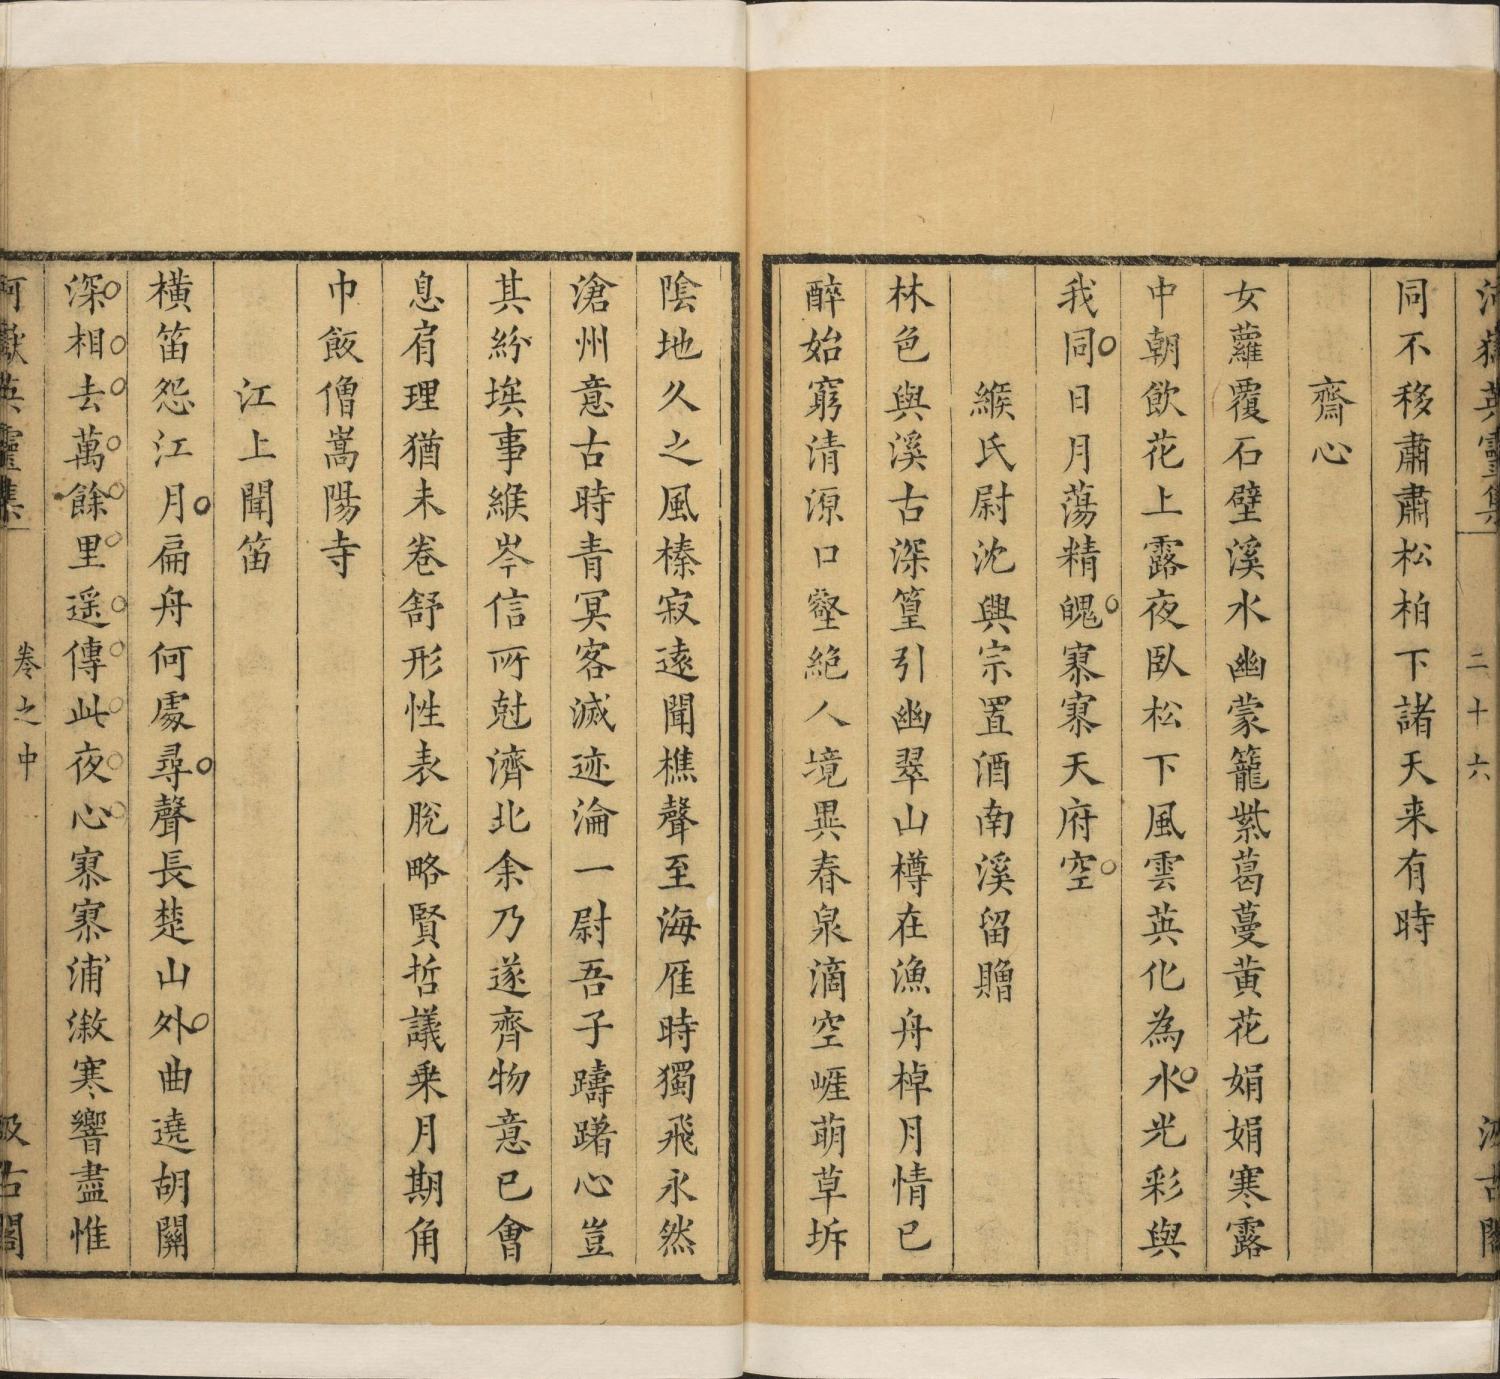 河嶽英靈集 二十六 汲古閣
同不移肅肅松柏下諸天来有時
齋心
女蘿覆石壁溪水幽蒙籠紫葛蔓黄花娟娟寒露
中朝飲花上露夜臥松下風雲英化為水光彩與
我同日月蕩精魄寥寥天府空
緱氏尉沈興宗置酒南溪留贈
林色與溪古深篁引幽翠山樽在漁舟棹月情已
醉始窮清源口壑絕人境異春泉滴空崕萌草坼
陰地久之風榛寂遠聞樵聲至海雁時獨飛永然
滄州意古時青冥客滅迹淪一尉吾子躊躇心豈
其紛埃事緱岑信所尅濟北余乃遂齊物意已會
息肩理猶未卷舒形性表脫略賢哲議乗月期角
巾飯僧嵩陽寺
江上聞笛
橫笛怨江月扁舟何處尋聲長楚山外曲遶胡關
深相去萬餘里遥傳此夜心寥寥浦溆寒響盡惟
河嶽英靈集 卷之中 汲古閣